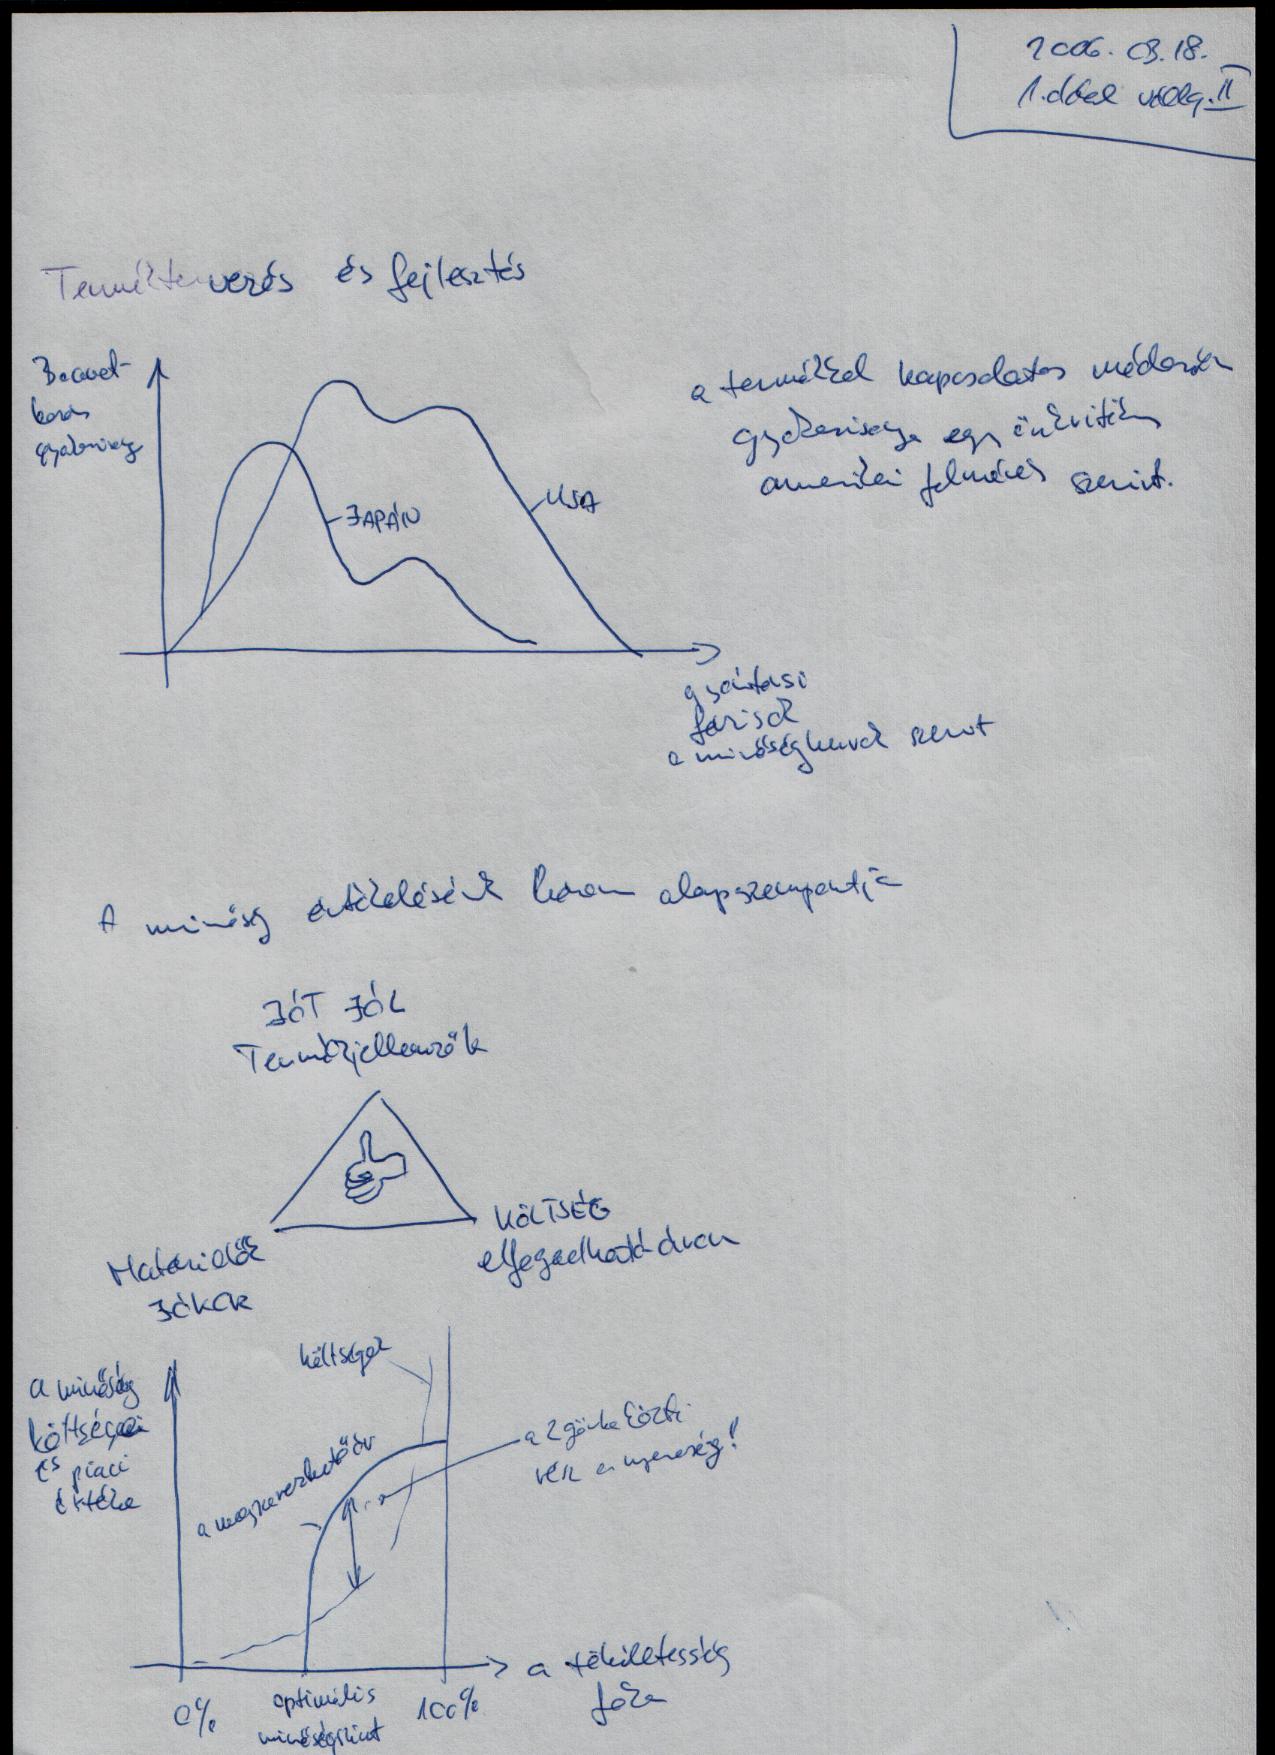 2006. 03. 18.
1. II
Terméktervezés és fejlesztés
Beavat-
kozás
gyakoriság
JAPÁN
USA
a termékkel kapcsolatos módosítás
gyakorisága egy önkritikus
amerikai felmérés szerint.
gyártási
fázisok
a minőséghurok szerint
A minőség értékelésének három alapszempontja
JÓT JÓL
Termékjellemzők
KÖLTSÉG
elfogadható áron
Határidők
JÓKOR
a minőség
költségei
és piaci
értéke
költségek
a 2 görbe közti
rész a nyereség!
0%
optimális
minőségszint
100%
a tökéletesség
foka